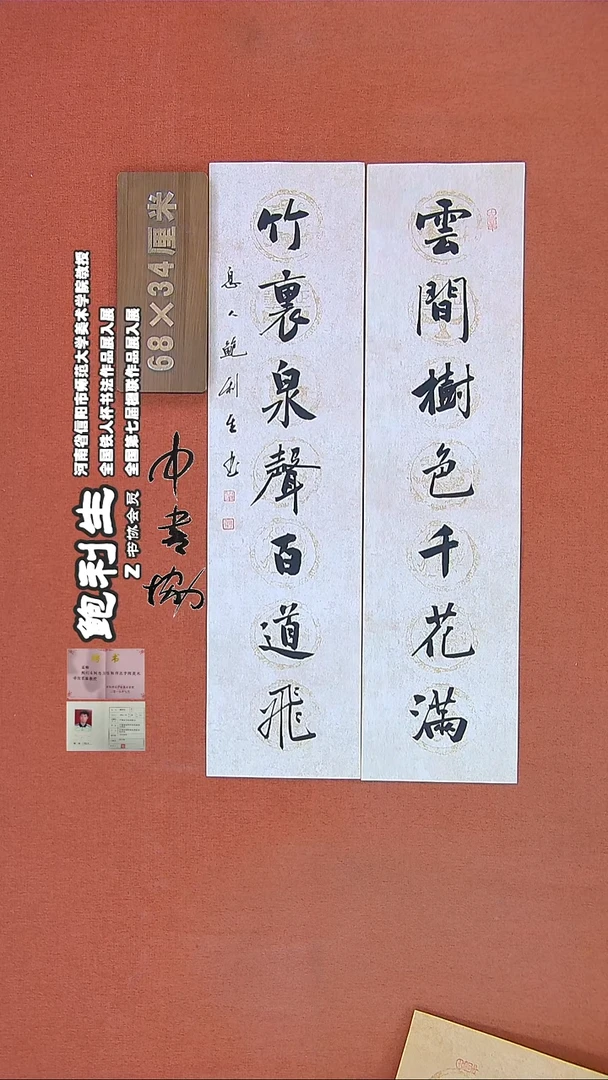 雲間樹色千花滿
竹裏泉聲百道飛
鮑利生书
68×34厘米
河南省信阳市师范大学美术学院教授
全国铁人杯书法作品展入展
全国第七届楹联作品展入展
鲍利生
Z 书协会员
中書協